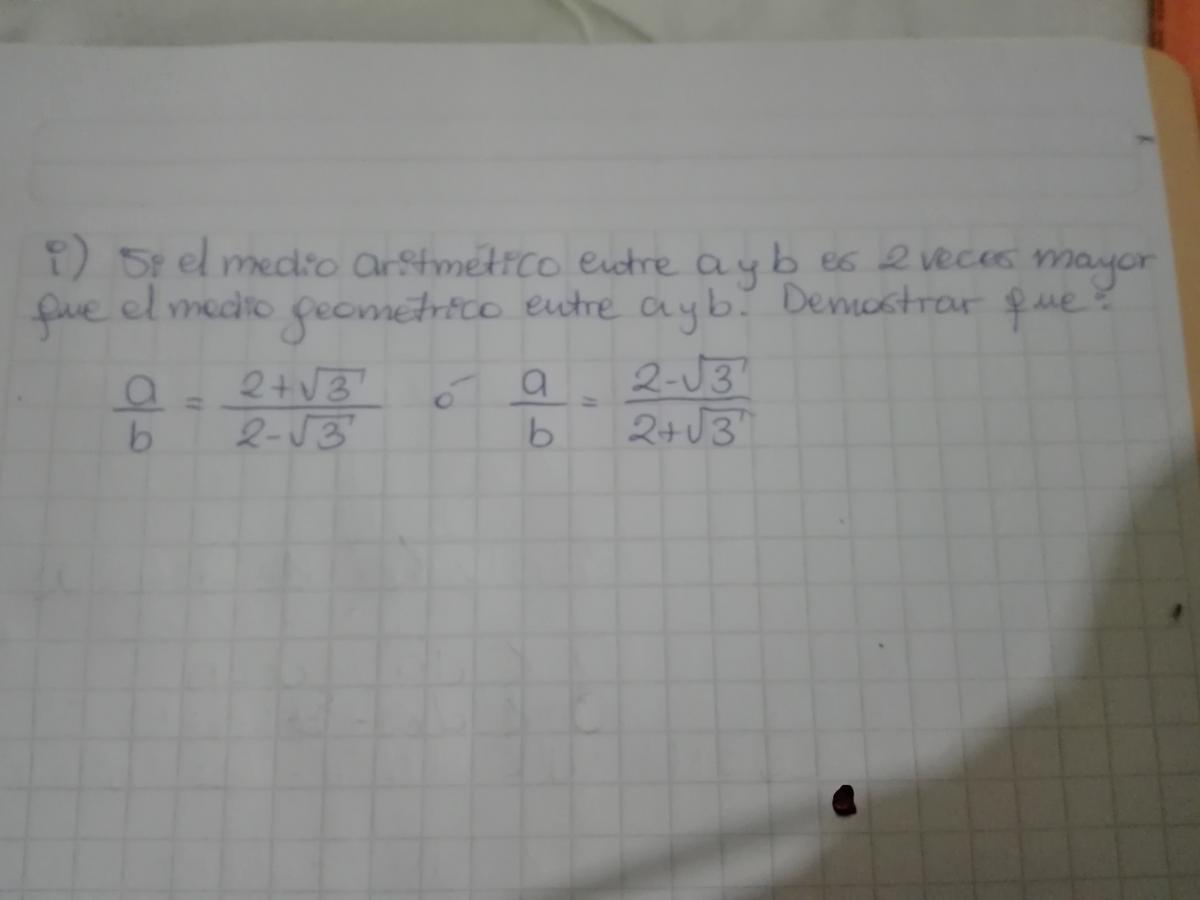 i) Si el medio aritmético entre a y b es 2 veces mayor
que el medio geométrico entre a y b. Demostrar que:
a/b = (2+√3)/(2-√3) ó a/b = (2-√3)/(2+√3)